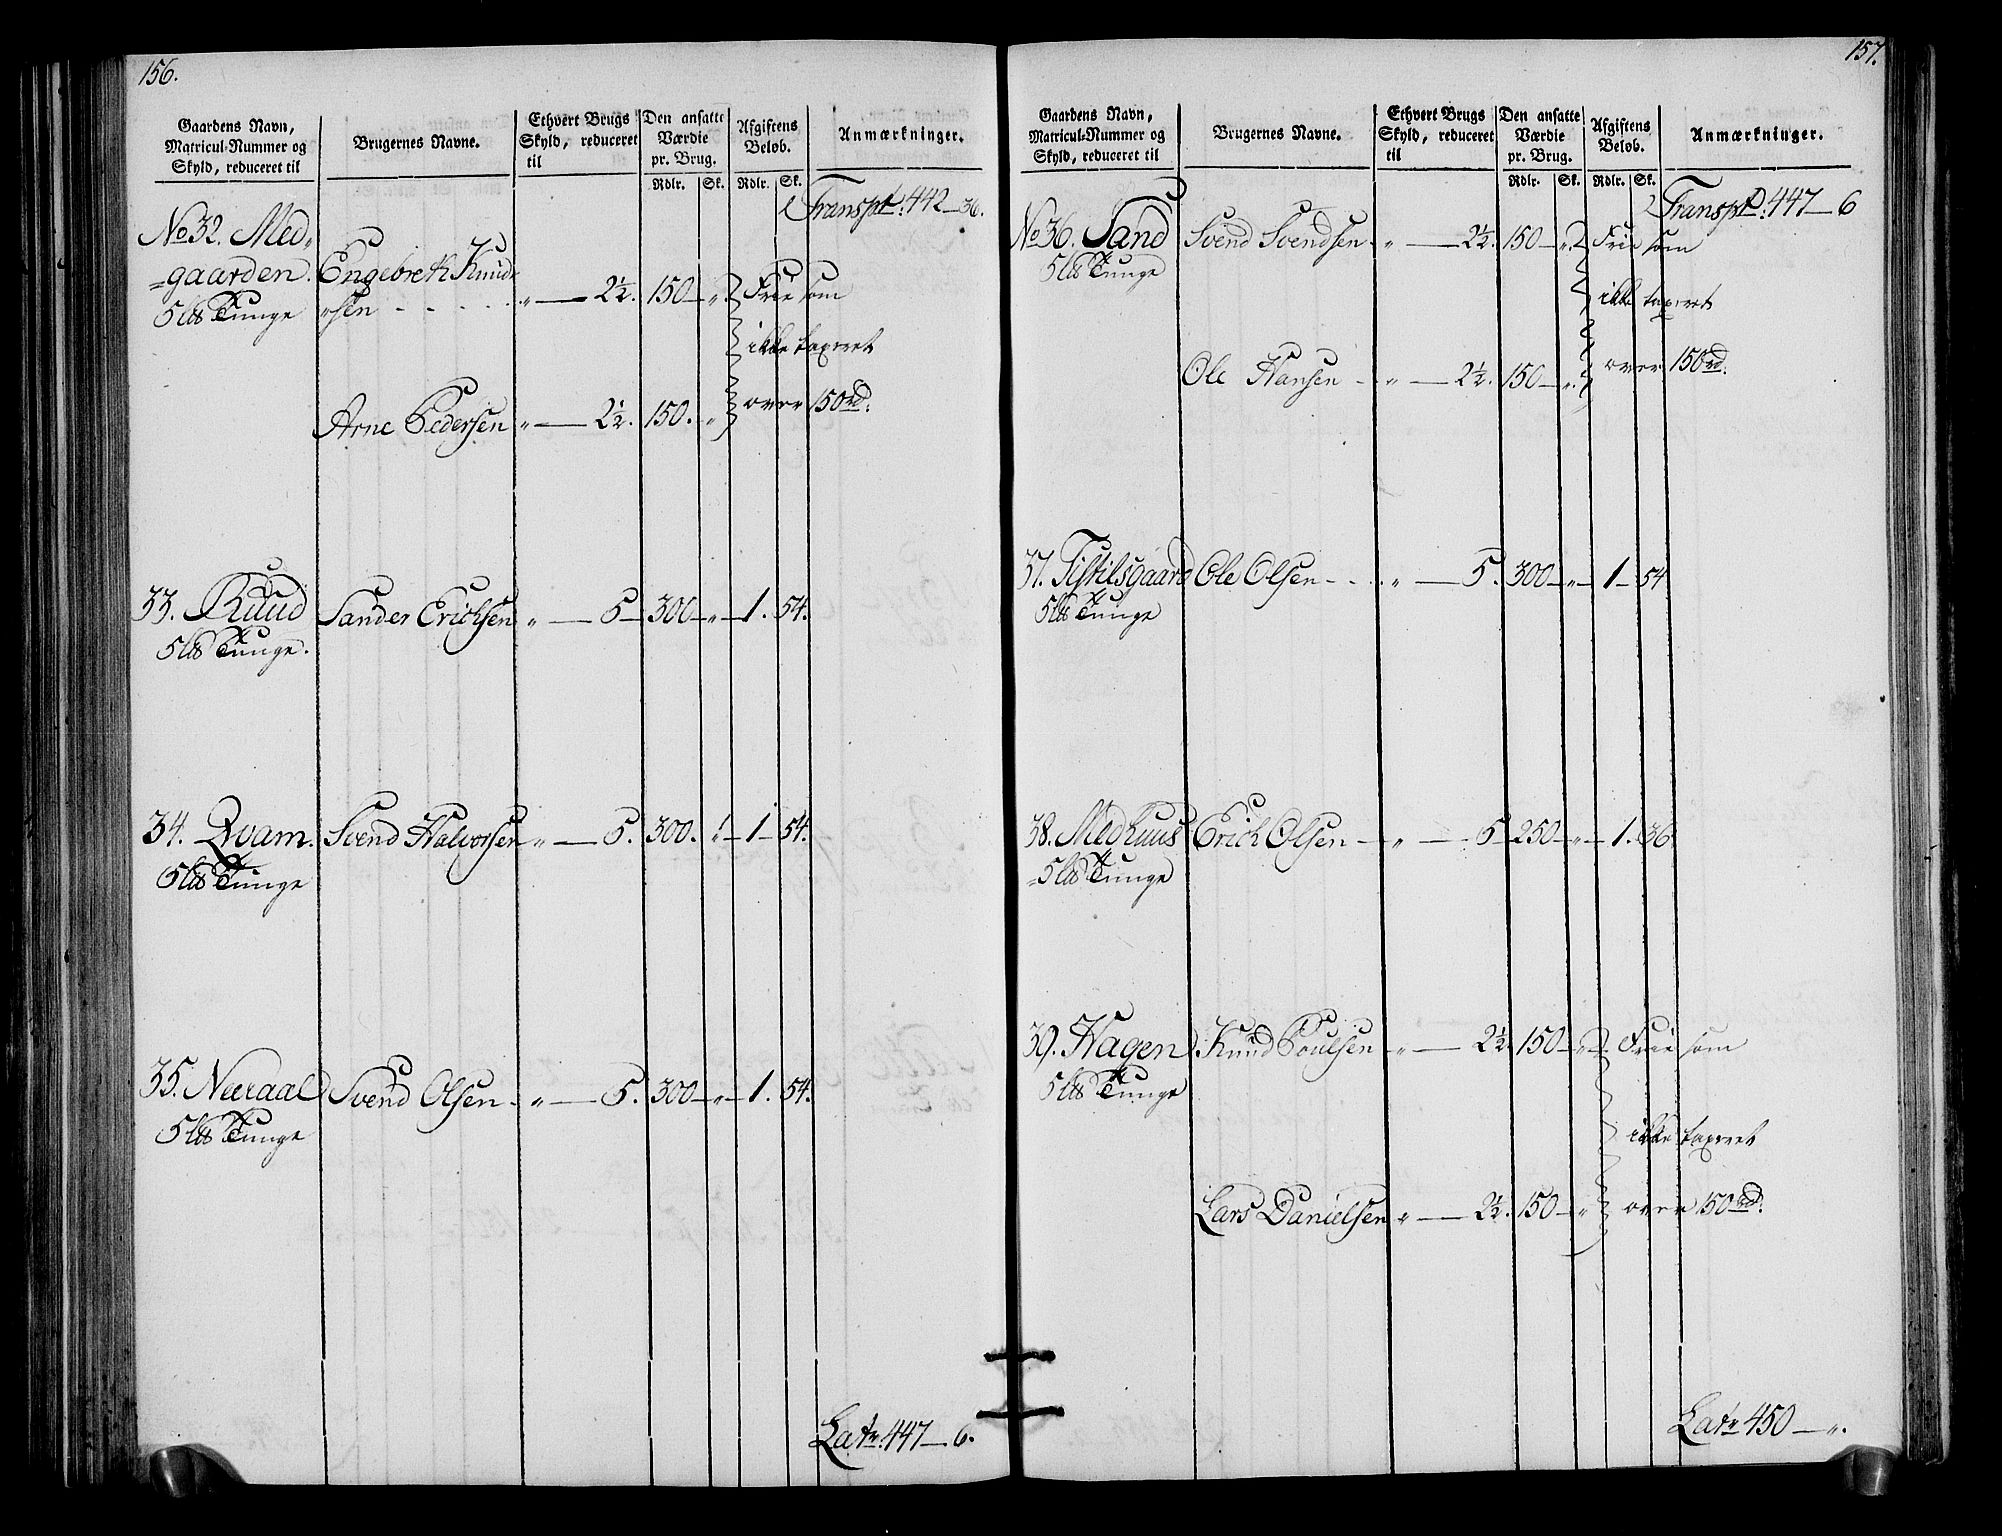 156.
Gaardens Navn, Matricul-Nummer og Skyld, reduceret til
Brugernes Navne.
Ethvert Brugs Skyld, reduceret til
Den ansatte Værdie pr. Brug.
Afgiftens Beløb.
Anmærkninger.
Rdlr. Sk. Rdlr. Sk.
Transpt: 442 – 36.
No 32. Med=
=gaarden Engebreth Knud=
5 Tunge =sen - - - - - „ — 2½. 150 – „ Frie som
ikke taxeret
Arne Pedersen „ — 2½. 150. „ over 150 rd:
33. Ruud Sander Erichsen „ — 5 – 300 – „ – 1. 54.
5 Tunge.
34. Qvam. Svend Halvorsen „ — 5. 300. „ – 1 – 54.
5 Tunge
35. Neeraal Svend Olsen. „ — 5. 300 – „ – 1. 54.
5 Tunge
Latr: 447 – 6.
157.
Gaardens Navn, Matricul-Nummer og Skyld, reduceret til
Brugernes Navne.
Ethvert Brugs Skyld, reduceret til
Den ansatte Værdie pr. Brug.
Afgiftens Beløb.
Anmærkninger.
Rdlr. Sk. Rdlr. Sk.
Transpt: 447 – 6
No 36. Sand Svend Svendsen „ — 2½. 150 – „ Frie som
5 Tunge
ikke taxeret
Ole Hansen - „ — 2½. 150 – „ over 150 rd.
37. Tistilsgaard Ole Olsen - - . „ — 5. 300 – „ – 1 – 54
5 Tunge
38. Medhuus Erich Olsen – „ — 5 – 250 – „ – 1. 36
5 Tunge
39. Hagen Knud Poulsen „ — 2½. 150 – „ Frie som
5 Tunge
ikke taxeret
Lars Danielsen „ — 2½. 150 – „ over 150 rd:
Latr 450 – „.